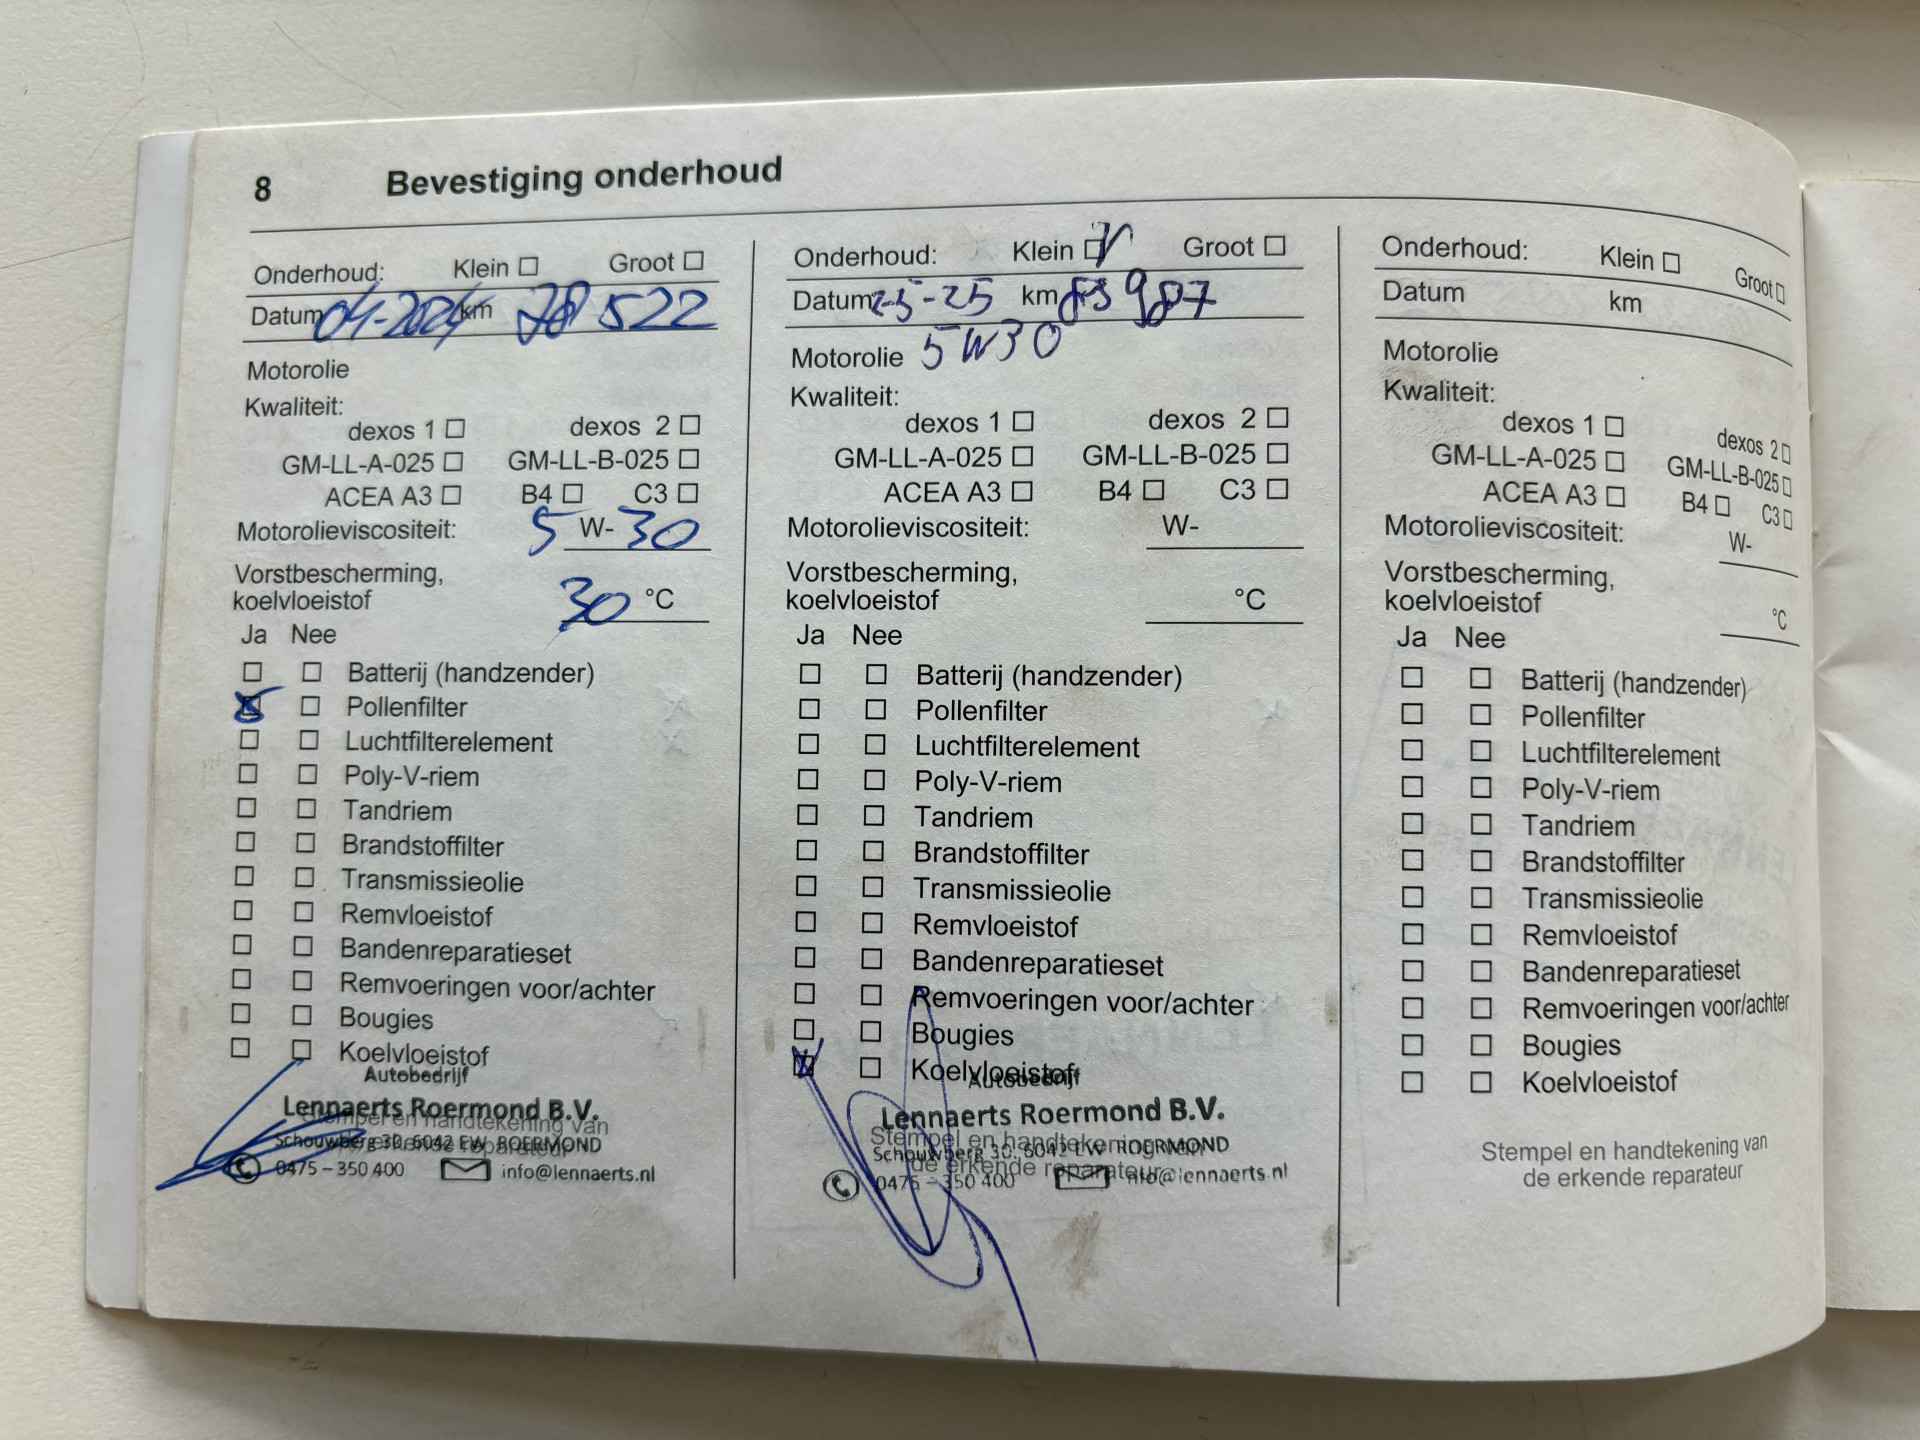 8 Bevestiging onderhoud
Onderhoud: Klein Groot
Datum 04-2024 km 78 522
Motorolie
Kwaliteit:
dexos 1 dexos 2
GM-LL-A-025 GM-LL-B-025
ACEA A3 B4 C3
Motorolieviscositeit: 5 W- 30
Vorstbescherming,
koelvloeistof 30 °C
Ja Nee
Batterij (handzender)
Pollenfilter
Luchtfilterelement
Poly-V-riem
Tandriem
Brandstoffilter
Transmissieolie
Remvloeistof
Bandenreparatieset
Remvoeringen voor/achter
Bougies
Koelvloeistof
Autobedrijf
Lennaerts Roermond B.V.
Stempel en handtekening van
Schouwberg 30, 6042 EW ROERMOND
de erkende reparateur
0475 – 350 400 info@lennaerts.nl
Onderhoud: Klein Groot
Datum 25-25 km 83987
Motorolie 5W30
Kwaliteit:
dexos 1 dexos 2
GM-LL-A-025 GM-LL-B-025
ACEA A3 B4 C3
Motorolieviscositeit: W-
Vorstbescherming,
koelvloeistof °C
Ja Nee
Batterij (handzender)
Pollenfilter
Luchtfilterelement
Poly-V-riem
Tandriem
Brandstoffilter
Transmissieolie
Remvloeistof
Bandenreparatieset
Remvoeringen voor/achter
Bougies
Koelvloeistof
Autobedrijf
Lennaerts Roermond B.V.
Stempel en handtekening van
Schouwberg 30, 6042 EW ROERMOND
de erkende reparateur
0475 – 350 400 info@lennaerts.nl
Onderhoud: Klein Groot
Datum km
Motorolie
Kwaliteit:
dexos 1 dexos 2
GM-LL-A-025 GM-LL-B-025
ACEA A3 B4 C3
Motorolieviscositeit: W-
Vorstbescherming,
koelvloeistof °C
Ja Nee
Batterij (handzender)
Pollenfilter
Luchtfilterelement
Poly-V-riem
Tandriem
Brandstoffilter
Transmissieolie
Remvloeistof
Bandenreparatieset
Remvoeringen voor/achter
Bougies
Koelvloeistof
Stempel en handtekening van
de erkende reparateur